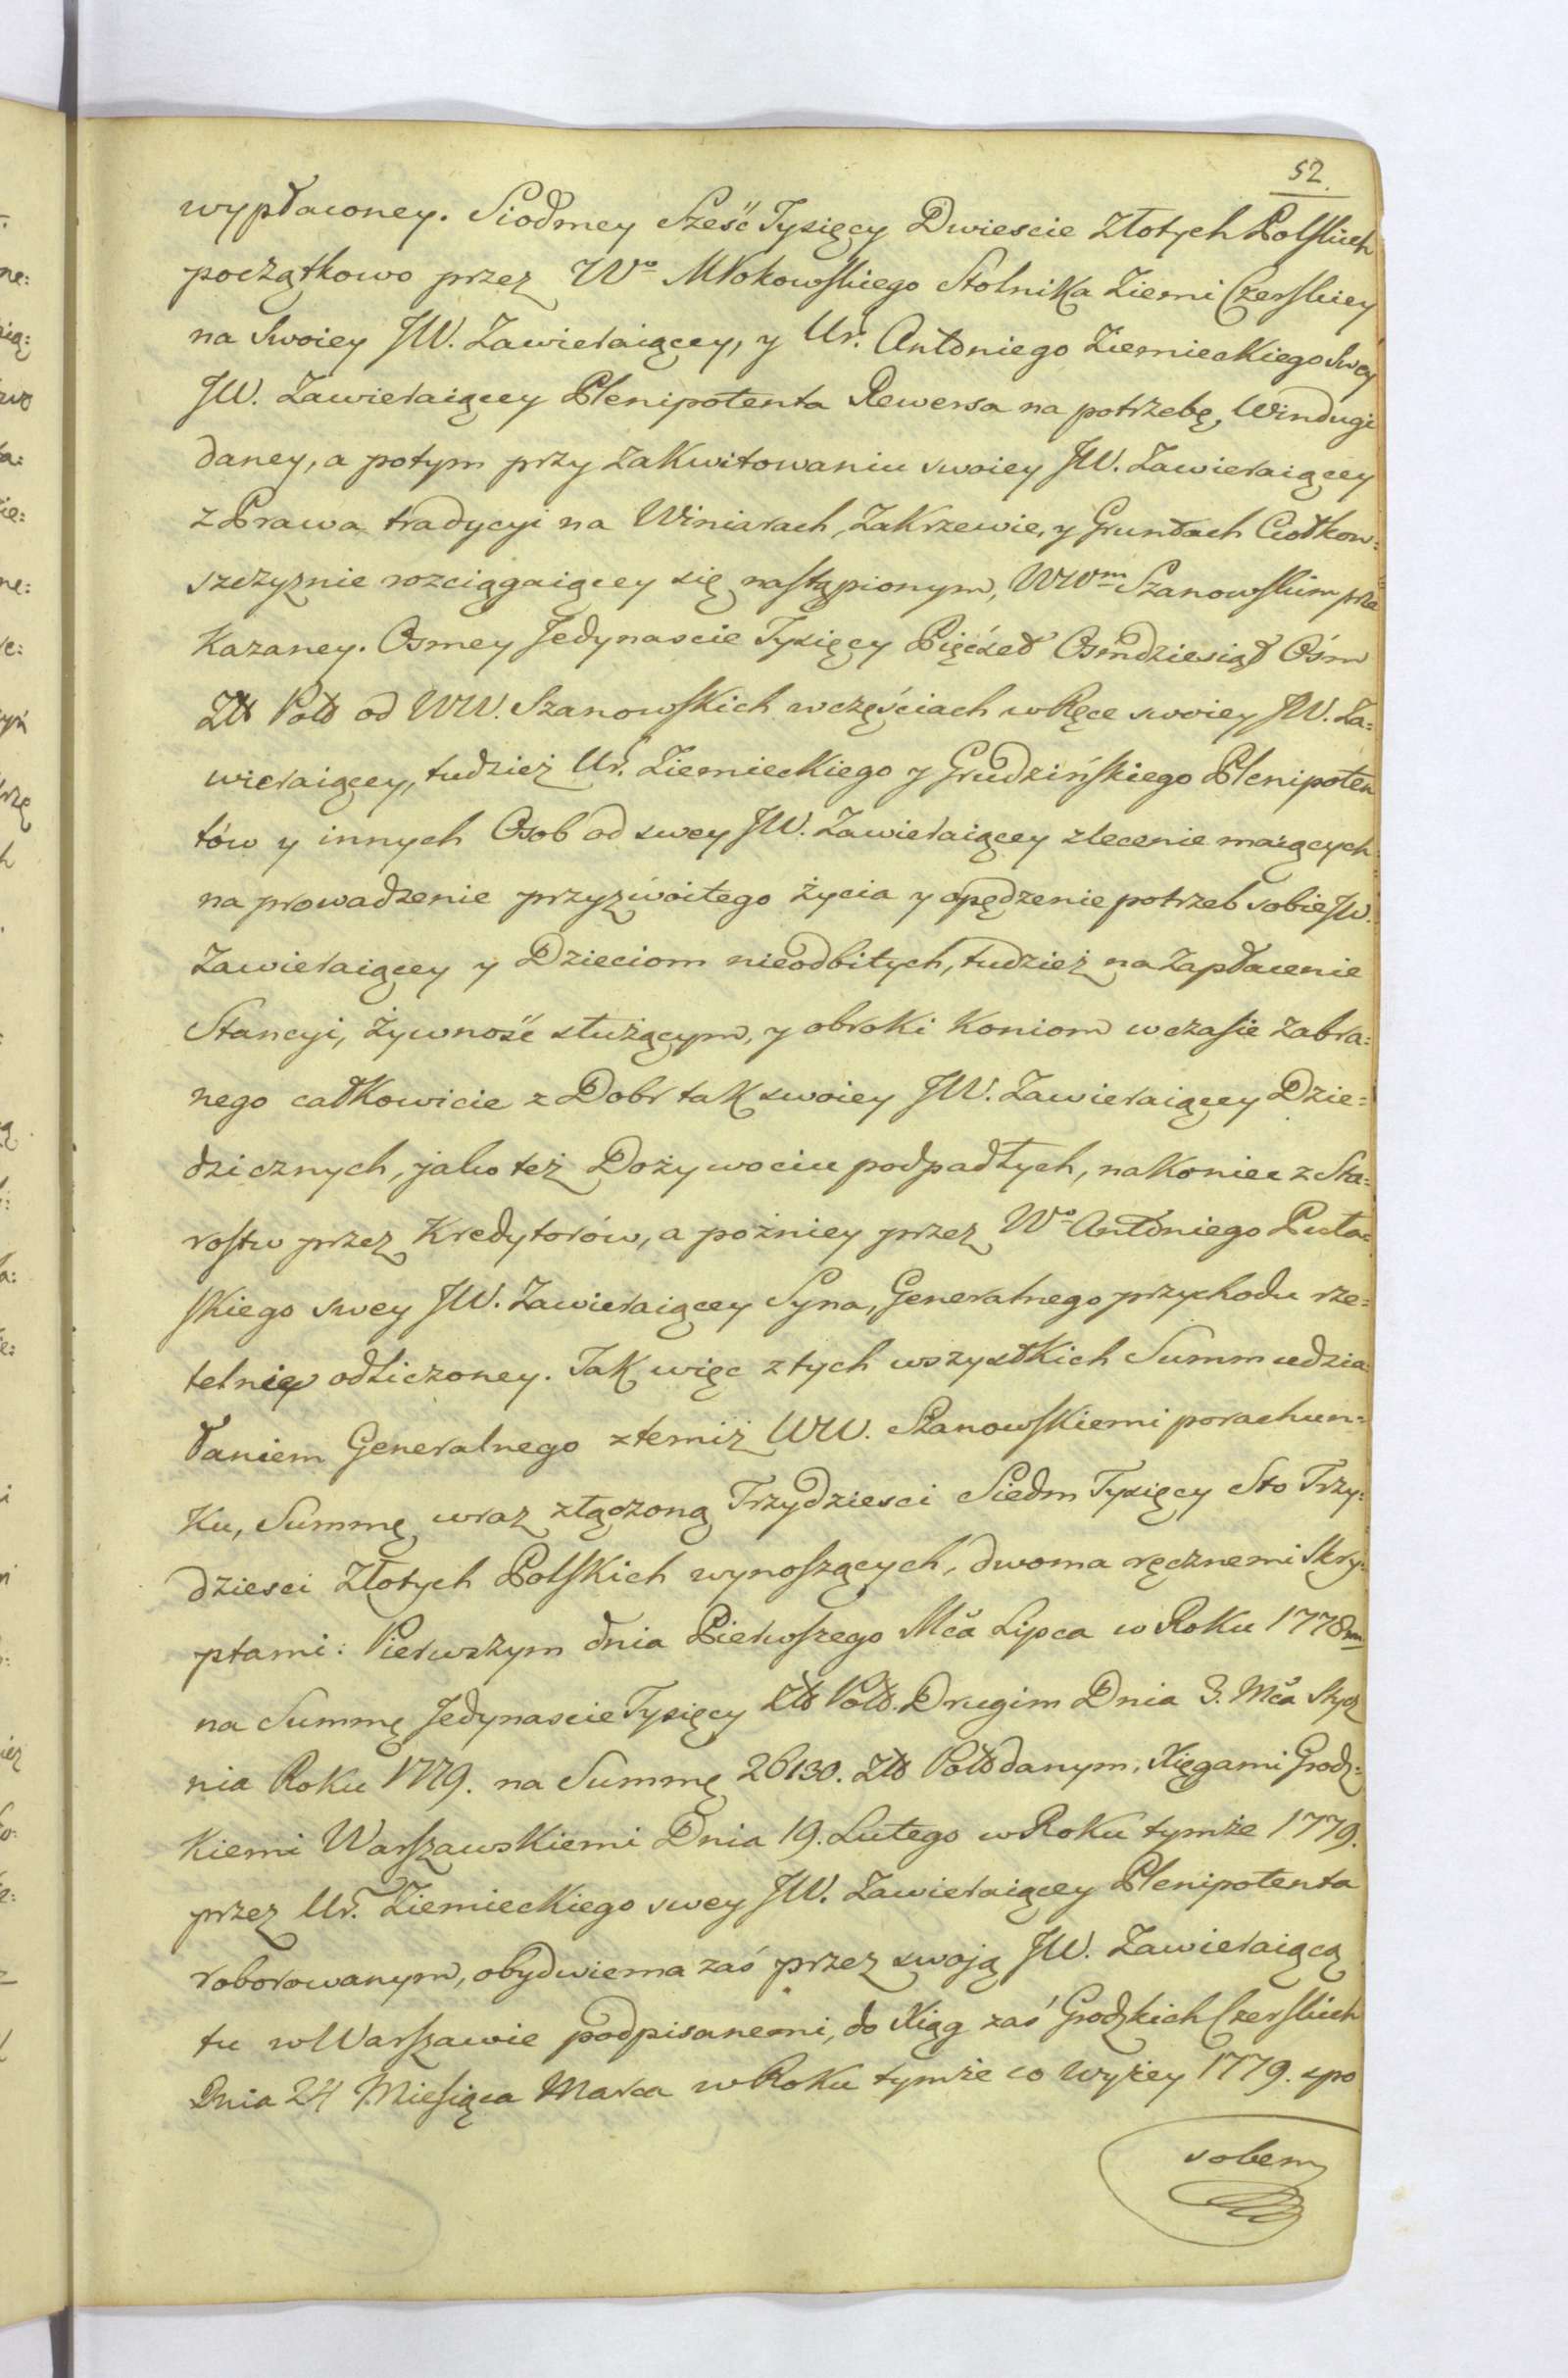 52.
wypłaconey. Siodmey Sześć Tysięcy Dwiescie Złotych Polskich
początkowo przez Wº Młokowskiego Stolnika Ziemi Czerskiey
na Swoiey JW. Zawieraiącey, y Ur. Antoniego Ziemieckiego swey
JW. Zawieraiącey Plenipotenta Rewersa na potrzebę, Windugi
daney, a potym przy zakwitowaniu swoiey JW. Zawieraiącey
z Prawa tradycyi na Winiarach, Zakrzewie, y Gruntach Ciołkow=
szczyznie rozciągaiącey się nastąpionym, WWm Szanowskim prze
kazaney. Osmey Jedynascie Tysięcy Pięćset Osmdziesiąt Ośm
Złł Poll od WW. Szanowskich w częściach w Ręce swoiey JW. Za=
wieraiącey, tudzież Ur. Ziemieckiego y Grudzińskiego Plenipoten
tów y innych Osob od swey JW. Zawieraiącey zlecenie maiących
na prowadzenie przyzwoitego życia y opędzenie potrzeb sobie JW.
Zawieraiącey y Dzieciom nieodbitych, tudzież na Zapłacenie
Stancyi, żywność służącym, y obroki koniom w czasie zabra=
nego całkowicie z Dobr tak swoiey JW. Zawieraiącey Dzie=
dzicznych, jako też Dożywociu podpadłych, nakoniec z Sta=
rostw przez Kredytorów, a pożniey przez Wº Antoniego Puła=
skiego swey JW. Zawieraiącey Syna, Generalnego przychodu rze=
telnie odliczoney. Tak więc z tych wszystkich Summ udzia=
łaniem Generalnego z temiż WW. Szanowskiemi porachun=
ku, Summę wraz złączoną Trzydziesci Siedm Tysięcy Sto Trzy=
dziesci Złotych Polskich wynoszących, dwoma ręcznemi Skry=
ptami: Pierwszym dnia Pierwszego Mca Lipca w Roku 1778m
na Summę Jedynascie Tysięcy Złł Poll. Drugim Dnia 3. Mca Stycz
nia Roku 1779. na Summę 26130. Złł Poll danym, Xięgami Grodz=
kiemi Warszawskiemi Dnia 19. Lutego w Roku tymże 1779.
przez Ur. Ziemieckiego swey JW. Zawieraiącey Plenipotenta
roborowanym, obydwiema zaś przez swoją JW. Zawieraiącą
tu w Warszawie podpisanemi, do Xiąg zaś Grodzkich Czerskich
Dnia 24 Miesiąca Marca w Roku tymże co wyżey 1779. spo
sobem